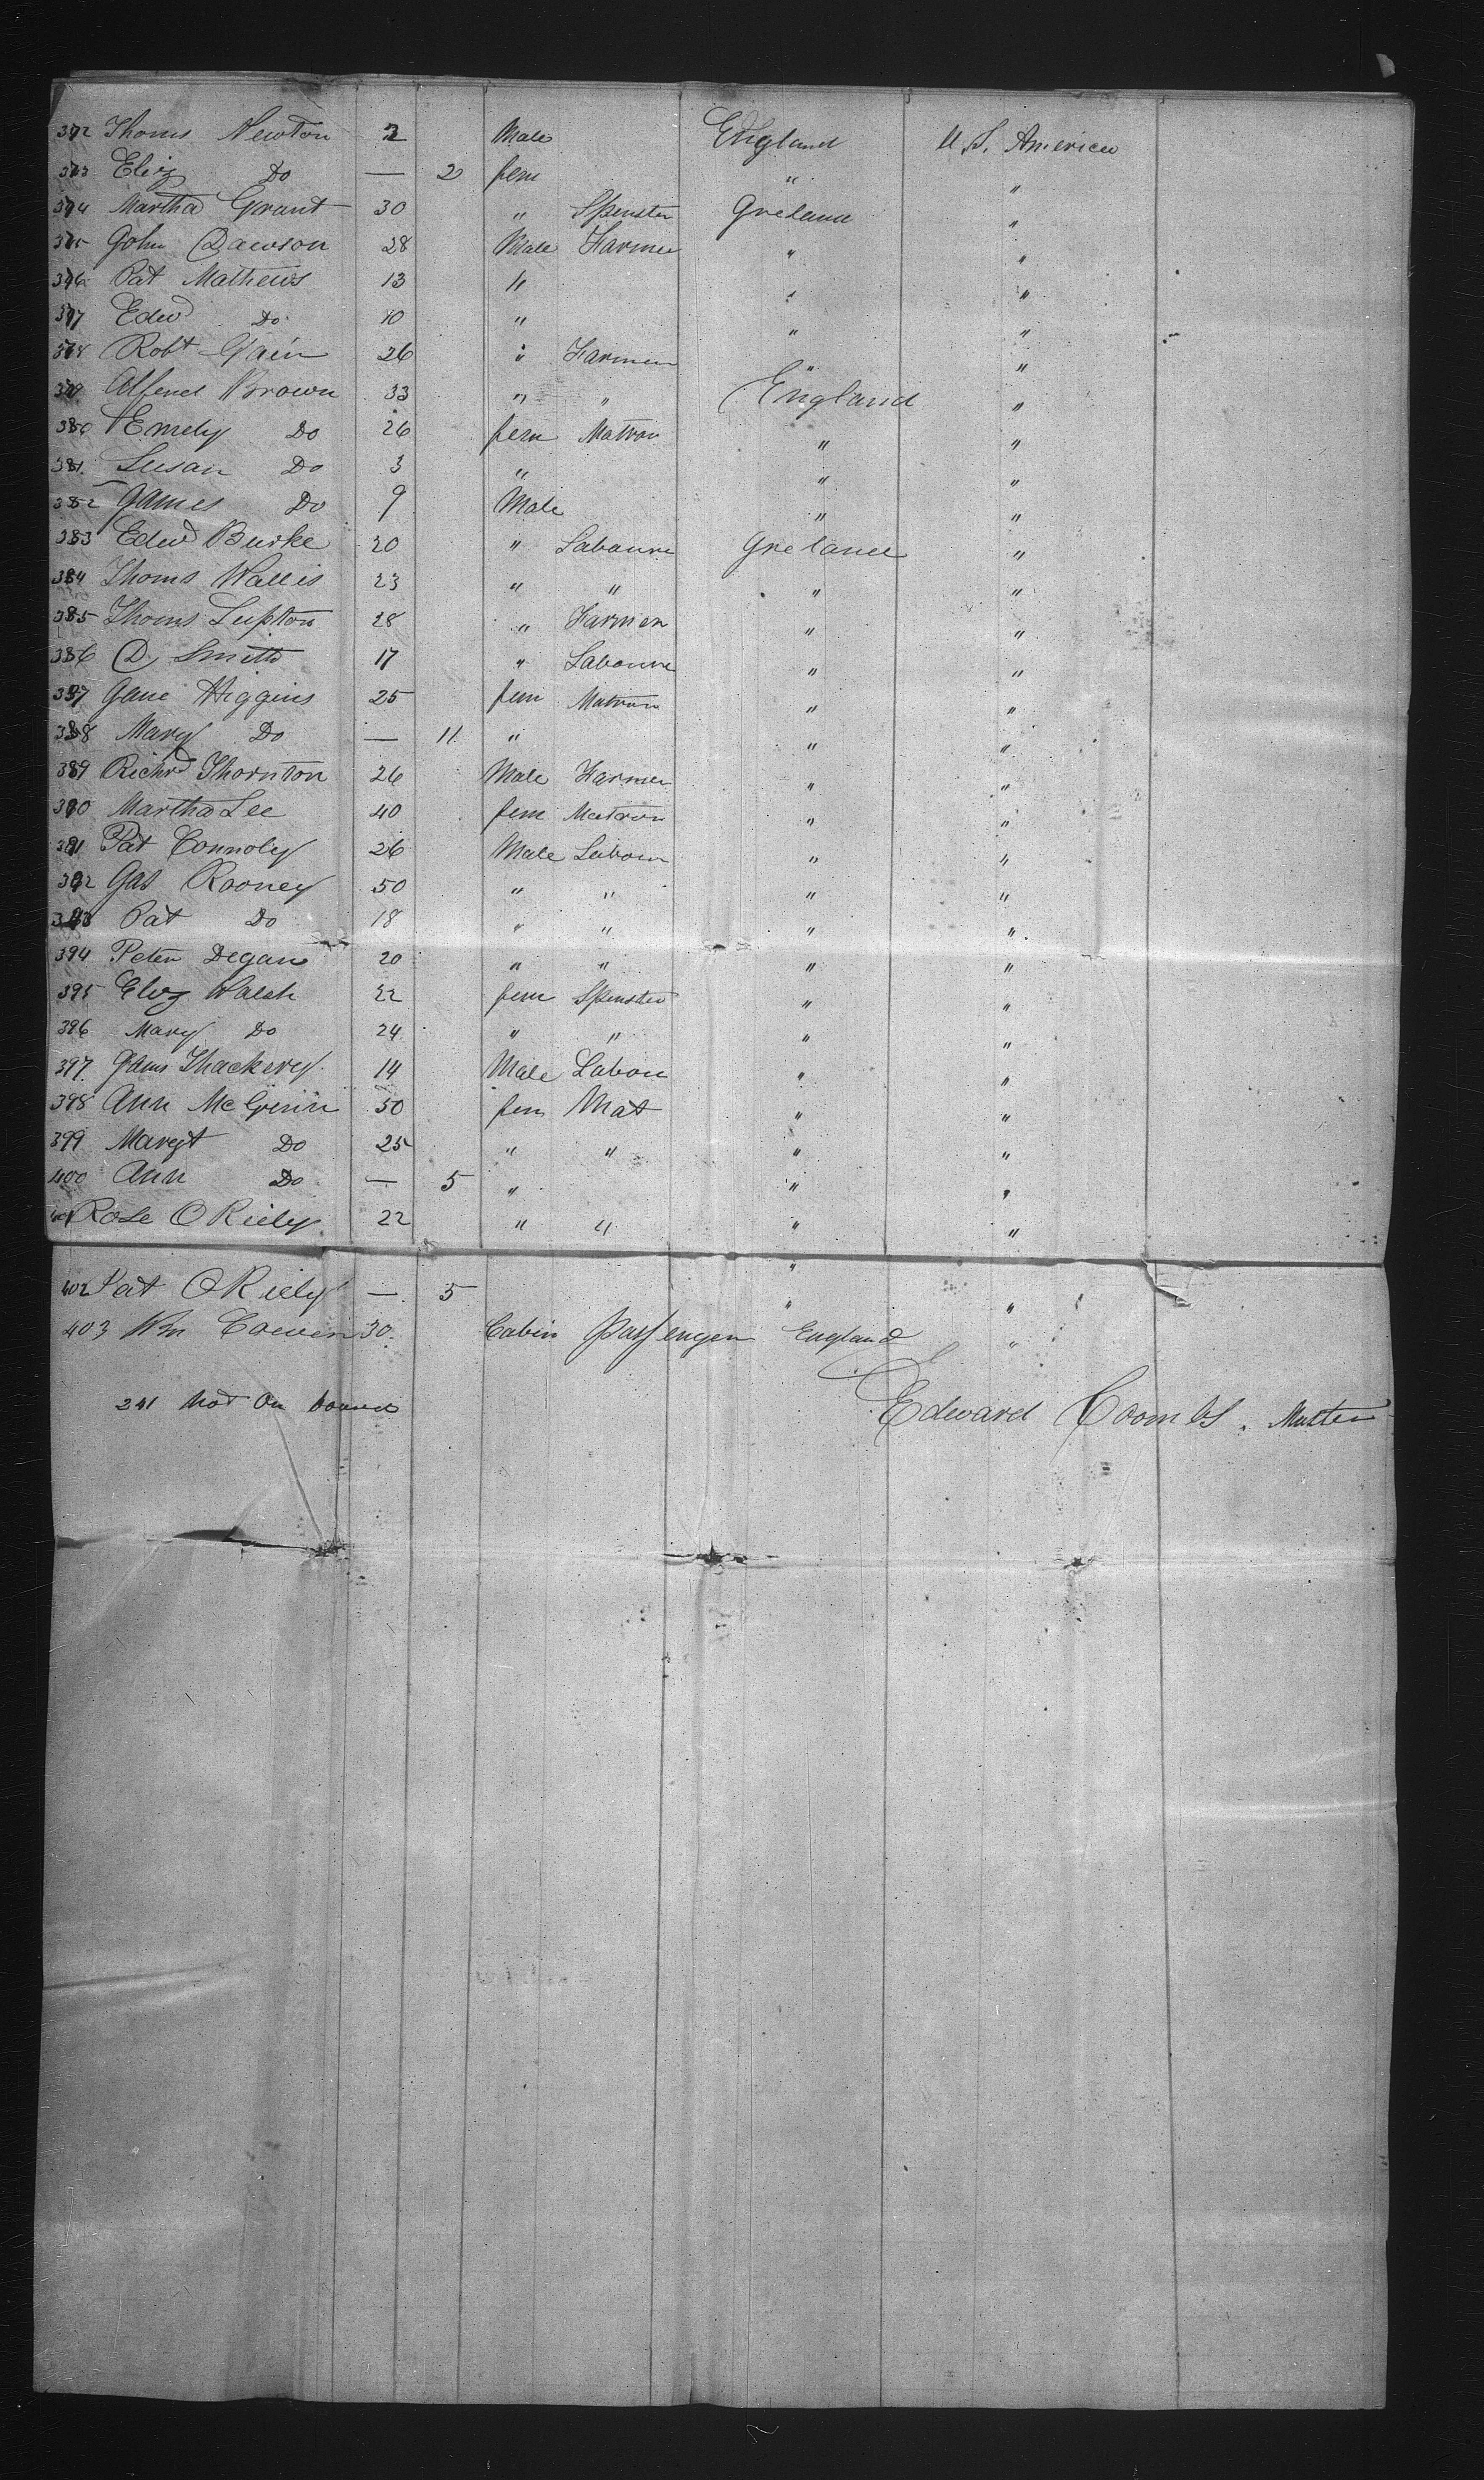 372 Thoms Newton 2 Male England U.S. America
373 Eliz Do — 2 fem " "
374 Martha Grant 30 " Spenster Ireland "
375 John Dawson 28 Male Farmer " "
376 Pat Mathews 13 " " "
377 Edwd Do 10 " " "
378 Robt 26 " Farmer " "
379 Alfred Brown 33 " " England "
380 Emely Do 26 fem Matron " "
381 Susan Do 3 " " "
382 James Do 9 Male " "
383 Edwd Burke 20 " Laboure Ireland "
384 Thoms Wallis 23 " " " "
385 Thoms Lupton 28 " Farmer " "
386 D Smith 17 " Laboure " "
387 Jane Higgins 25 fem Matron " "
388 Mary Do — 11 " " "
389 Richd Thornton 26 Male Farmer " "
390 Martha Lee 40 fem Matron " "
391 Pat Connoly 26 Male Labour " "
392 Jas Rooney 50 " " " "
393 Pat Do 18 " " " "
394 Peter Degan 20 " " " "
395 Eliz Walsh 22 fem Spenster " "
396 Mary Do 24 " " " "
397 Jams Thackery 14 Male Labou " "
398 Ann McGinin 50 fem Mat " "
399 Margt Do 25 " " " "
400 Ann Do — 5 " " "
401 Rose ORiely 22 " " " "
402 Pat ORiely — 5 " "
403 Wm Cowen 30 Cabin Passenger England "
241 Not On board
Edward Coombs. Master